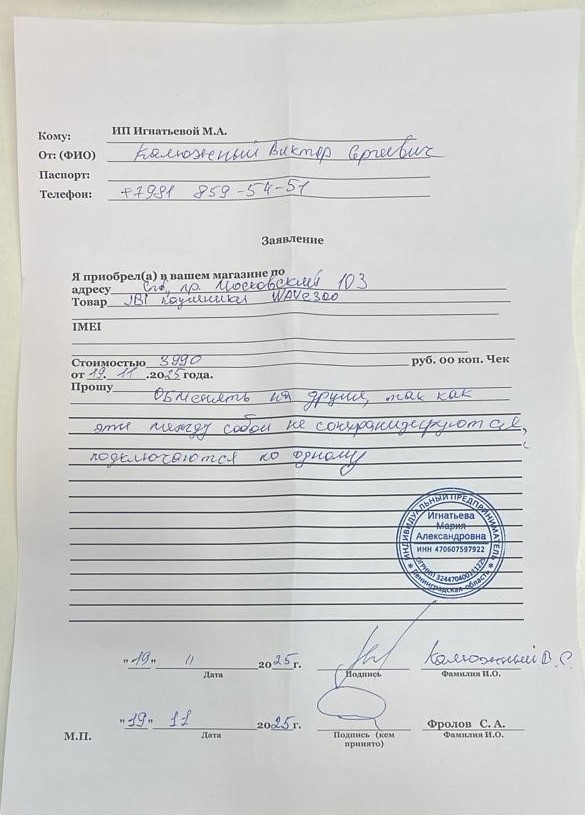 Кому: ИП Игнатьевой М.А.
От: (ФИО) Калюжный Виктор Сергеевич
Паспорт:
Телефон: +7981 859-54-51
Заявление
Я приобрел(а) в вашем магазине по
адресу Спб, пр. Московский 103
Товар JBl наушники WAVE300
IMEI
Стоимостью 3990 руб. 00 коп. Чек
от 19. 11 .2025года.
Прошу Обменять на другие, так как
эти между собой не сонхранизируются,
подключаются по одному
ИНДИВИДУАЛЬНЫЙ ПРЕДПРИНИМАТЕЛЬ
Игнатьева
Мария
Александровна
ИНН 470607597922
Ленинградская область
"19" 11 2025г.
Калюжный В. С.
Дата Подпись Фамилия И.О.
"19" 11 2025г. Фролов С. А.
М.П. Дата Подпись (кем Фамилия И.О.
принято)